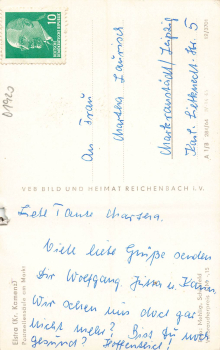 10
DEUTSCHE
DEMOKRATISCHE REPUBLIK
01920
An Frau
Martha Laurisch
Markranstädt/Leipzig
Karl-Liebknecht-Str. 5
VEB BILD UND HEIMAT REICHENBACH i. V.
Elstra (Kr. Kamenz)
Postmeilensäule am Markt
Liebe Tante Martha.
Viele liebe Grüße senden
Dir Wolfgang, Jutta u. Karin
Wir sehen uns doch gar
nicht mehr? Bist Du noch
gesund? Hoffentlich!